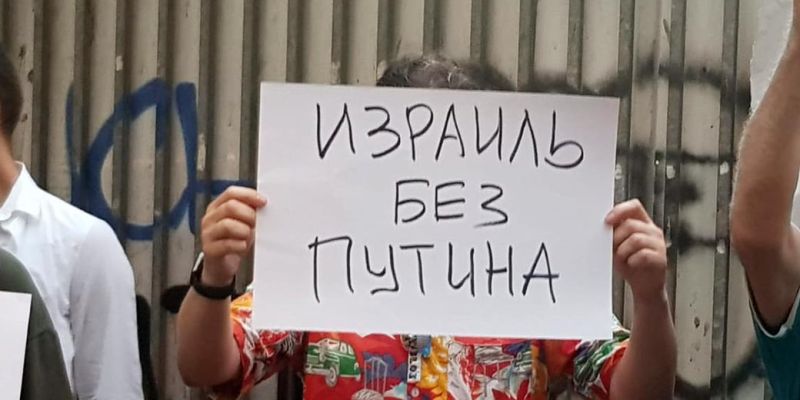 ИЗРАИЛЬ
БЕЗ
ПУТИНА